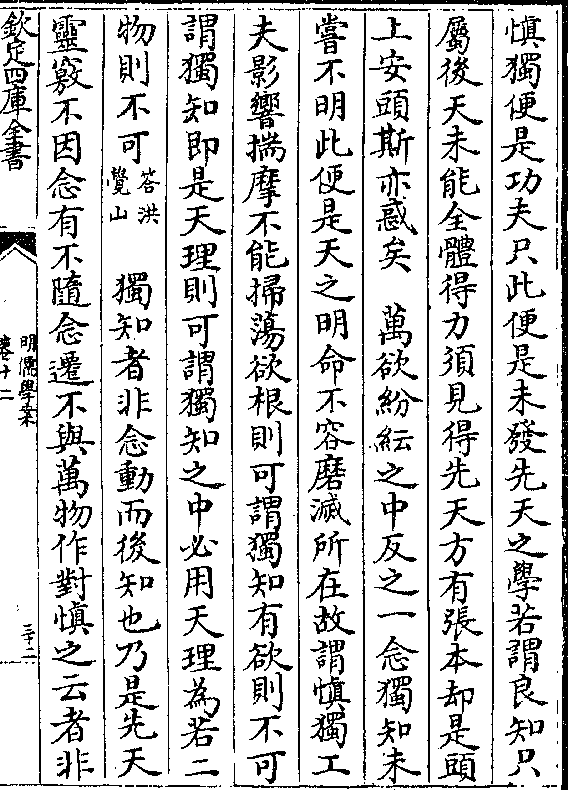 慎獨便是功夫只此便是未發先天之學若謂良知只
屬後天未能全體得力須見得先天方有張本却是頭
上安頭斯亦惑矣　萬欲紛紜之中反之一念獨知未
嘗不明此便是天之明命不容磨滅所在故謂慎獨工
夫影響揣摩不能掃蕩欲根則可謂獨知有欲則不可
謂獨知即是天理則可謂獨知之中必用天理為若二
物則不可答洪覺山　獨知者非念動而後知也乃是先天
靈竅不因念有不隨念遷不與萬物作對慎之云者非
欽定四庫全書
明儒學案
卷十二
三十二